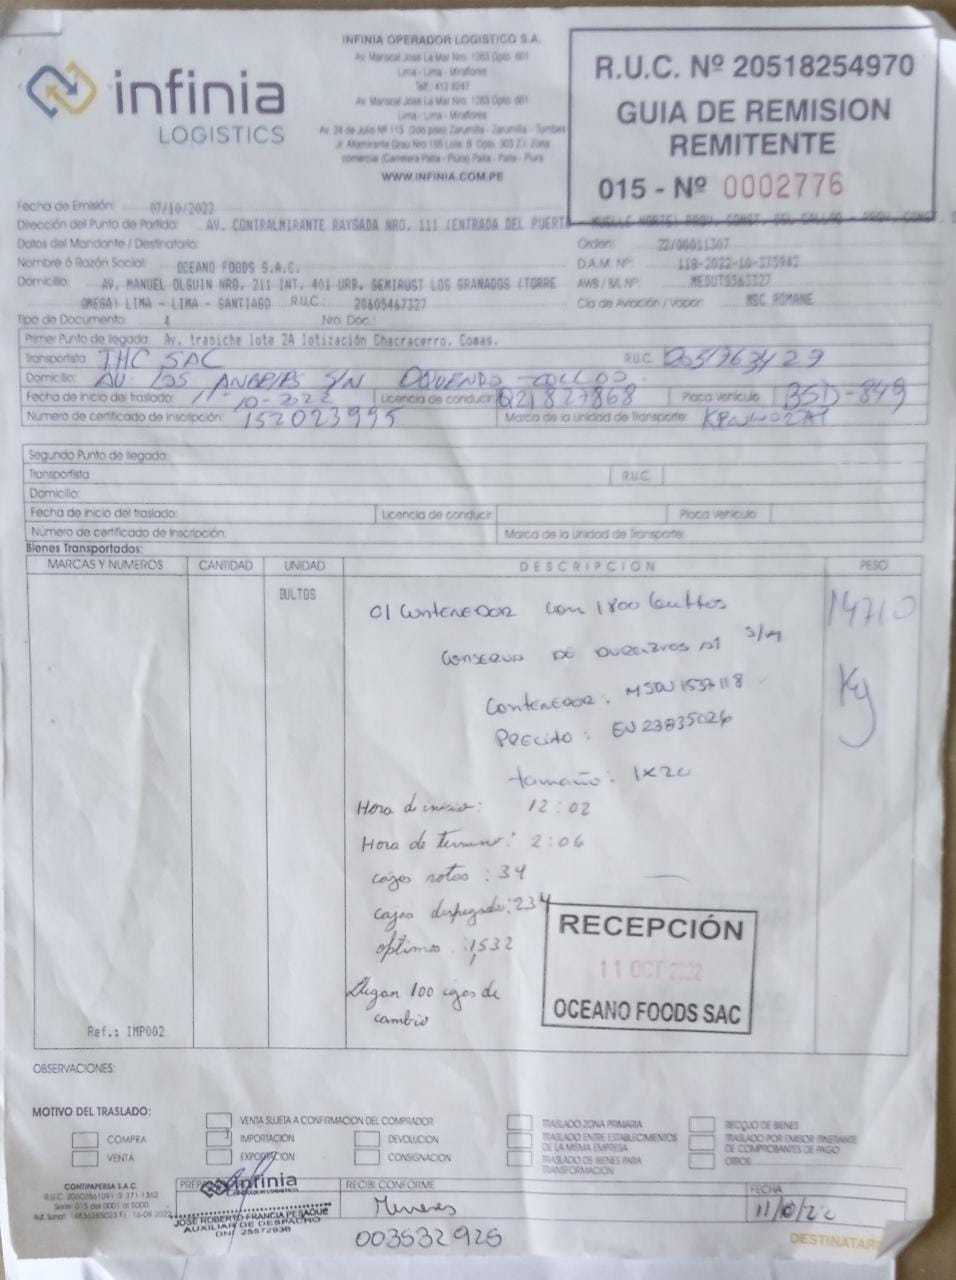 infinia
LOGISTICS
INFINIA OPERADOR LOGISTICO S.A.
Av. Mariscal Jose La Mar Nro. 1263 Dpto. 601
Lima - Lima - Miraflores
Telf.: 412 8247
Av. Mariscal Jose La Mar Nro. 1263 Dpto. 601
Lima - Lima - Miraflores
Av. 24 de Julio Nº 113 (2do piso) Zarumilla - Zarumilla - Tumbes
Jr. Altamirante Grau Nro. 155 Lote: B Dpto. 303 Z.I. Zona
comercial (Carretera Paita - Piura) Paita - Paita - Piura
WWW.INFINIA.COM.PE
R.U.C. Nº 20518254970
GUIA DE REMISION
REMITENTE
015 - Nº 0002776
Fecha de Emisión: 07/10/2022
Dirección del Punto de Partida: AV. CONTRALMIRANTE RAYGADA NRO. 111 (ENTRADA DEL PUERTO MUELLE NORTE) PROV. CONST. DEL CALLAO - PROV. CONST. D
Datos del Mandante / Destinatario:
Orden: 22/00011307
Nombre ó Razón Social: OCEANO FOODS S.A.C.
D.A.M. Nº: 118-2022-10-375942
Domicilio: AV. MANUEL OLGUIN NRO. 211 INT. 401 URB. SEMIRUST LOS GRANADOS (TORRE
AWB / B/L Nº: MEDUTS563327
OMEGA) LIMA - LIMA - SANTIAGO R.U.C.: 20605467327
Cía de Aviación / Vapor: MSC ROMANE
Tipo de Documento: 4 Nro. Doc.:
Primer Punto de llegada: Av. trapiche lote 2A lotización Chacracerro. Comas.
Transportista THC SAC R.U.C.
Domicilio: AV. LOS ANGELES S/N OQUENDO - CALLAO.
Fecha de inicio del traslado: 11-10-2022 Licencia de conducir: Q21827868 Placa Vehículo BSD-849
Número de certificado de Inscripción: 152023995 Marca de la Unidad de Transporte:
Segundo Punto de llegada:
Transportista R.U.C.
Domicilio:
Fecha de inicio del traslado: Licencia de conducir: Placa Vehículo
Número de certificado de Inscripción: Marca de la Unidad de Transporte:
Bienes Transportados:
MARCAS Y NUMEROS CANTIDAD UNIDAD DESCRIPCION PESO
BULTOS
01 CONTENEDOR CON 1800 bultos
14710
Kg
CONSERVA DE DURAZNOS S/M
CONTENEDOR: MSDU1537118
PRECINTO: EU23835026
tamaño: 1x20
Hora de inicio: 12:02
Hora de termino: 2:06
cajas rotas: 34
cajas despegado: 234
optimos: 1,532
Llegan 100 cajas de
cambio
RECEPCIÓN
11 OCT 2022
OCEANO FOODS SAC
Ref.: IMP002
OBSERVACIONES:
MOTIVO DEL TRASLADO:
COMPRA
VENTA
VENTA SUJETA A CONFIRMACION DEL COMPRADOR
IMPORTACION
EXPORTACION
DEVOLUCION
CONSIGNACION
TRASLADO ZONA PRIMARIA
TRASLADO ENTRE ESTABLECIMIENTOS
DE LA MISMA EMPRESA
TRASLADO DE BIENES PARA
TRANSFORMACION
RECOJO DE BIENES
TRASLADO POR EMISOR ITINERANTE
DE COMPROBANTES DE PAGO
OTROS
CONTIPAPERSA S.A.C.
R.U.C. 20602861091
Serie: 015 del 0001 al 5000
infinia
JOSE ROBERTO FRANCIA PESAQUE
AUXILIAR DE DESPACHO
DNI. 25572938
RECIBI CONFORME
Meneses
003532925
FECHA
11/10/22
DESTINATARI